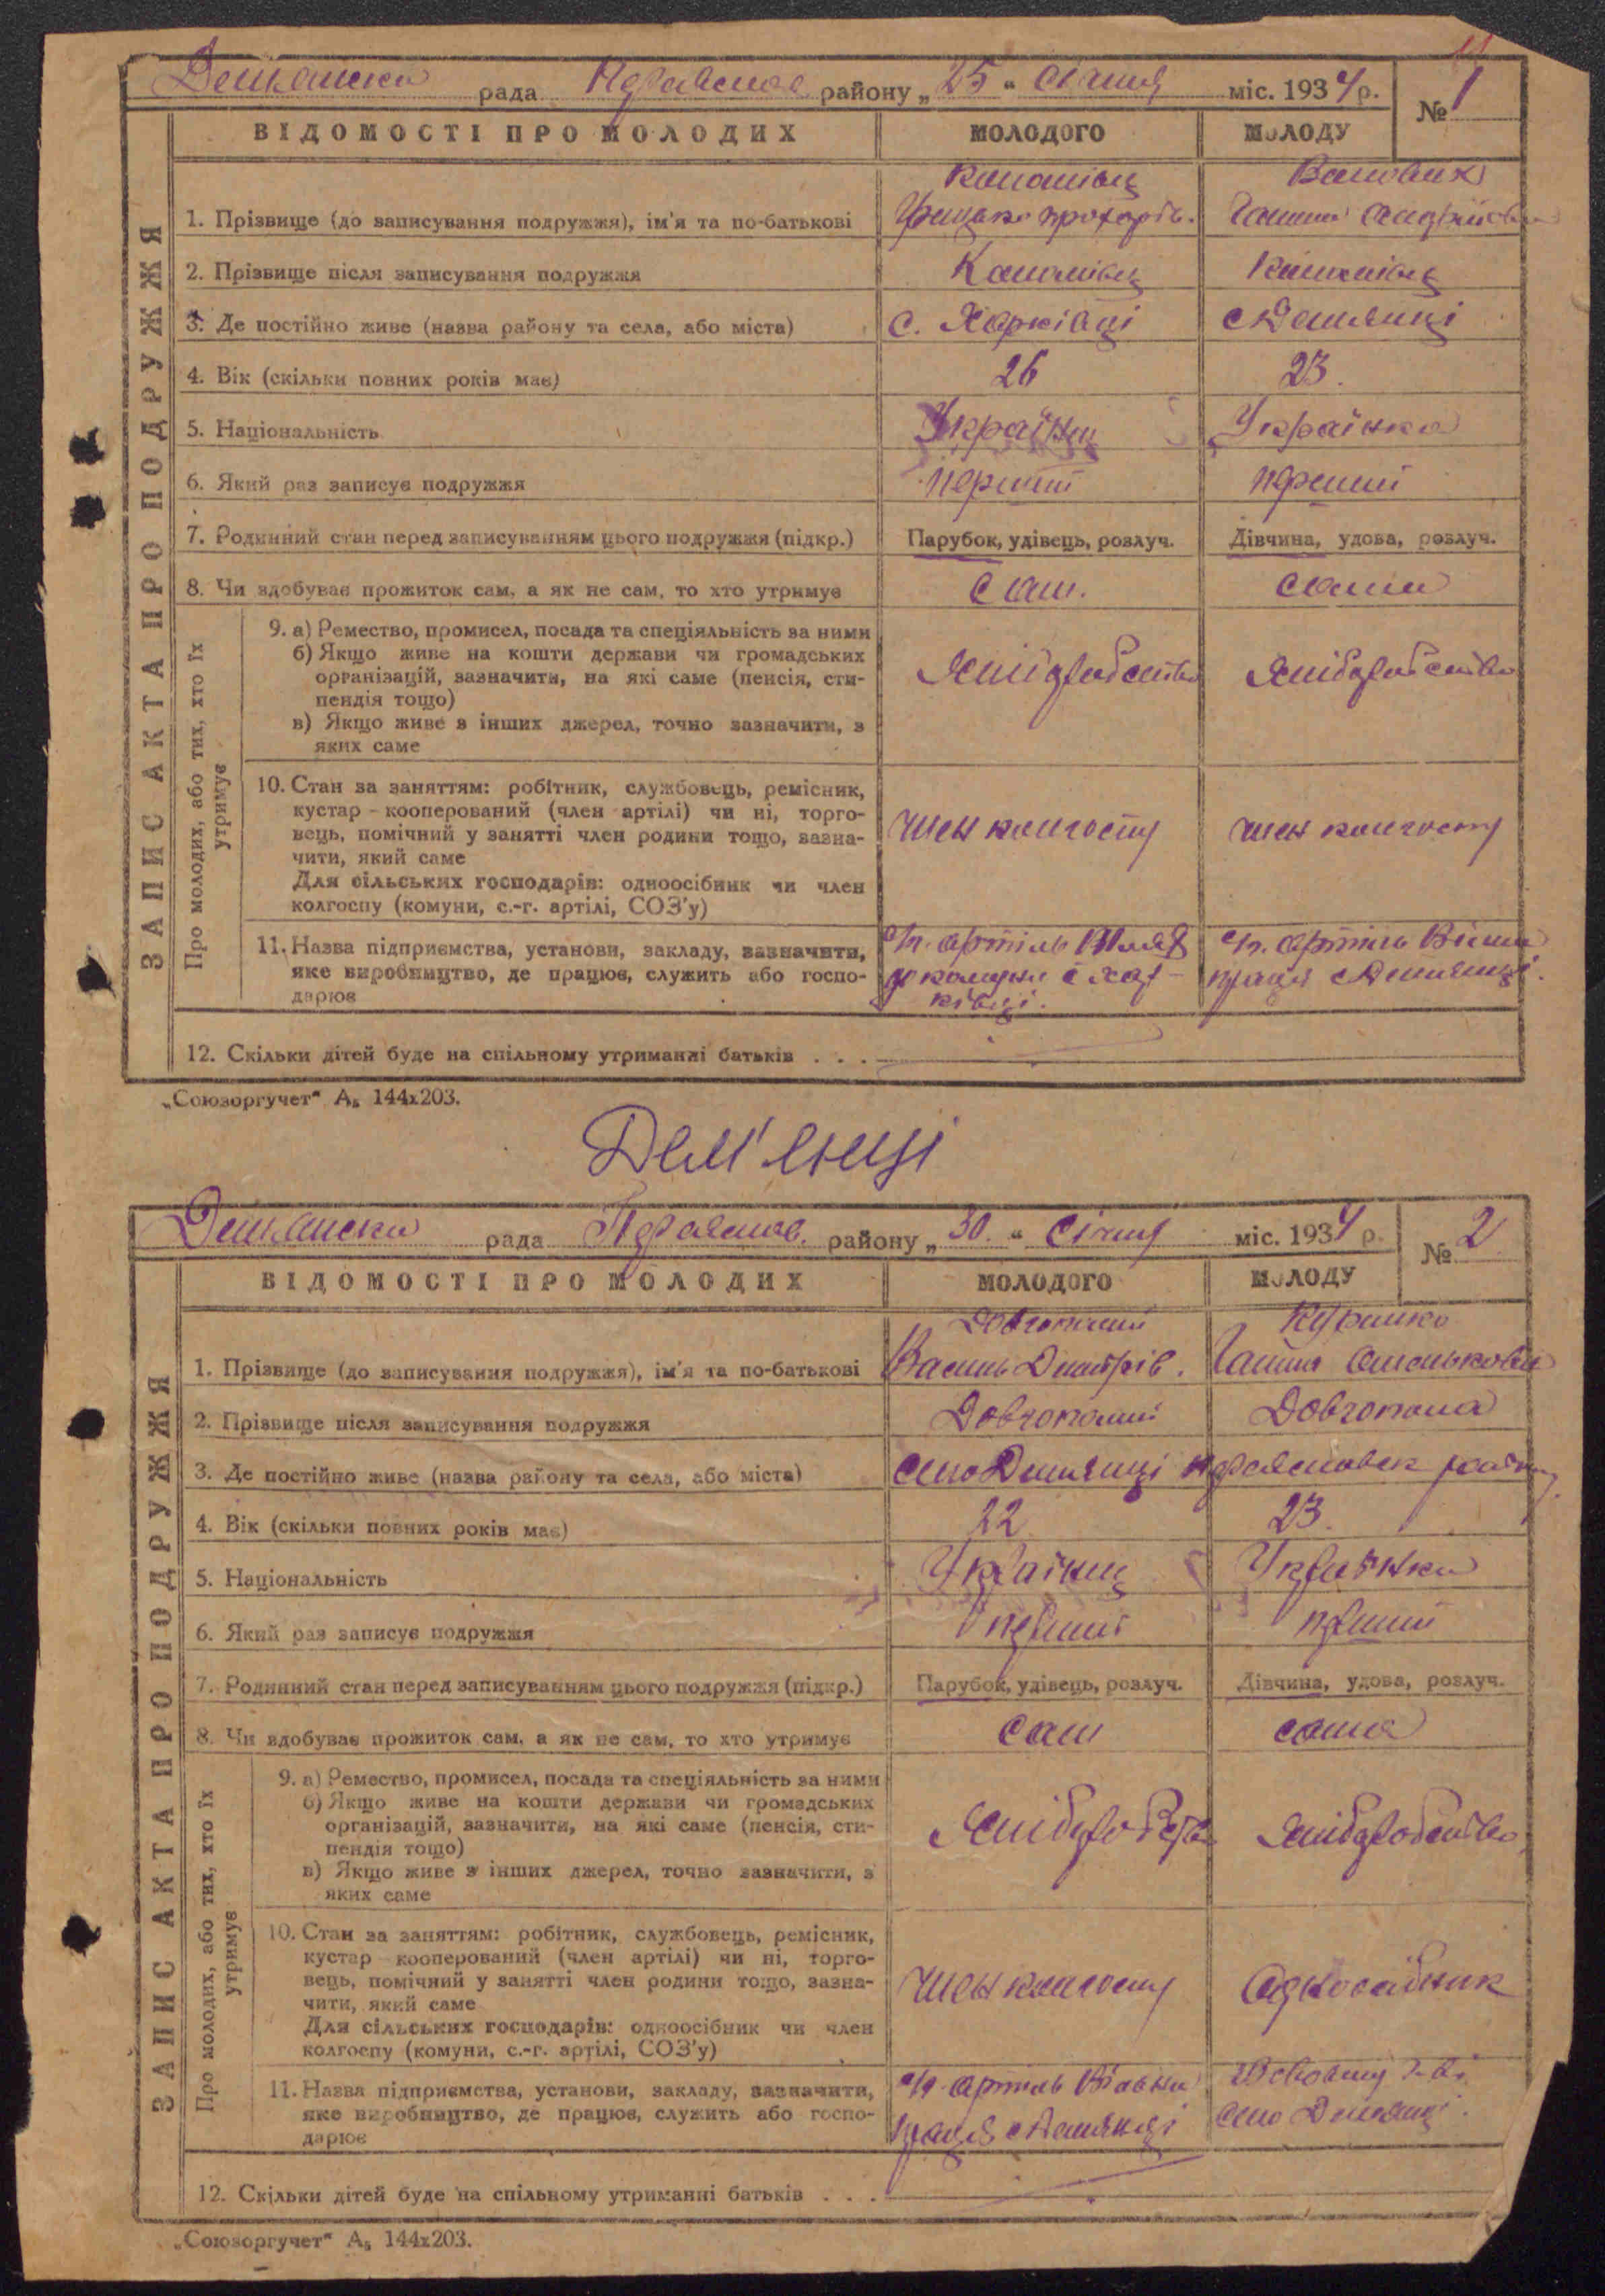 Демянска рада Переяслав району „25“ січня міс. 1934 р. № 1
ЗАПИС АКТА ПРО ПОДРУЖЖЯ
ВІДОМОСТІ ПРО МОЛОДИХ МОЛОДОГО МОЛОДУ
1. Прізвище (до записування подружжя), ім'я та по-батькові Грицько Прохорів. Ганна Андріївна
2. Прізвище після записування подружжя
3. Де постійно живе (назва району та села, або міста) с. Харківці с Демянці
4. Вік (скільки повних років має) 26 23.
5. Національність Українец Українка
6. Який раз записує подружжя перший перший
7. Родинний стан перед записуванням цього подружжя (підкр.) Парубок, удівець, розлуч. Дівчина, удова, розлуч.
8. Чи здобуває прожиток сам, а як не сам, то хто утримує сам. сама
Про молодих, або тих, хто їх утримує
9. а) Ремество, промисел, посада та спеціяльність за ними
б) Якщо живе на кошти держави чи громадських
організацій, зазначити, на які саме (пенсія, сти-
пендія тощо)
в) Якщо живе з інших джерел, точно зазначити, з
яких саме
Хліборобство Хліборобство
10. Стан за заняттям: робітник, службовець, ремісник,
кустар - кооперований (член артілі) чи ні, торго-
вець, помічний у занятті член родини тощо, зазна-
чити, який саме
Для сільських господарів: одноосібник чи член
колгоспу (комуни, с.-г. артілі, СОЗ'у)
член колгоспу член колгоспу
11. Назва підприємства, установи, закладу, зазначити,
яке виробництво, де працює, служить або госпо-
дарює
артіль Шлях
до комуни с Хар-
ківці.
артіль Вільна
праця с Демянці.
12. Скільки дітей буде на спільному утриманні батьків . . .
„Союзоргучет“ А₅ 144х203.
Дем'янці
Демянска рада Переяслав. району „30.“ січня міс. 1934 р. № 2
ЗАПИС АКТА ПРО ПОДРУЖЖЯ
ВІДОМОСТІ ПРО МОЛОДИХ МОЛОДОГО МОЛОДУ
Добгополий
1. Прізвище (до записування подружжя), ім'я та по-батькові Василь Дмитрів. Ганна
2. Прізвище після записування подружжя Добгополий Добгопола
3. Де постійно живе (назва району та села, або міста) село Демянці Переясловск району
4. Вік (скільки повних років має) 22 23.
5. Національність Українец Українка
6. Який раз записує подружжя перший перший
7. Родинний стан перед записуванням цього подружжя (підкр.) Парубок, удівець, розлуч. Дівчина, удова, розлуч.
8. Чи здобуває прожиток сам, а як не сам, то хто утримує сам сама
Про молодих, або тих, хто їх утримує
9. а) Ремество, промисел, посада та спеціяльність за ними
б) Якщо живе на кошти держави чи громадських
організацій, зазначити, на які саме (пенсія, сти-
пендія тощо)
в) Якщо живе з інших джерел, точно зазначити, з
яких саме
Хліборобство Хліборобство
10. Стан за заняттям: робітник, службовець, ремісник,
кустар кооперований (член артілі) чи ні, торго-
вець, помічний у занятті член родини тощо, зазна-
чити, який саме
Для сільських господарів: одноосібник чи член
колгоспу (комуни, с.-г. артілі, СОЗ'у)
член колгоспу Односібник
11. Назва підприємства, установи, закладу, зазначити,
яке виробництво, де працює, служить або госпо-
дарює
артіль Вільна
праця с Демянці
село Демянці.
12. Скільки дітей буде на спільному утриманні батьків . . .
„Союзоргучет“ А₅ 144х203.